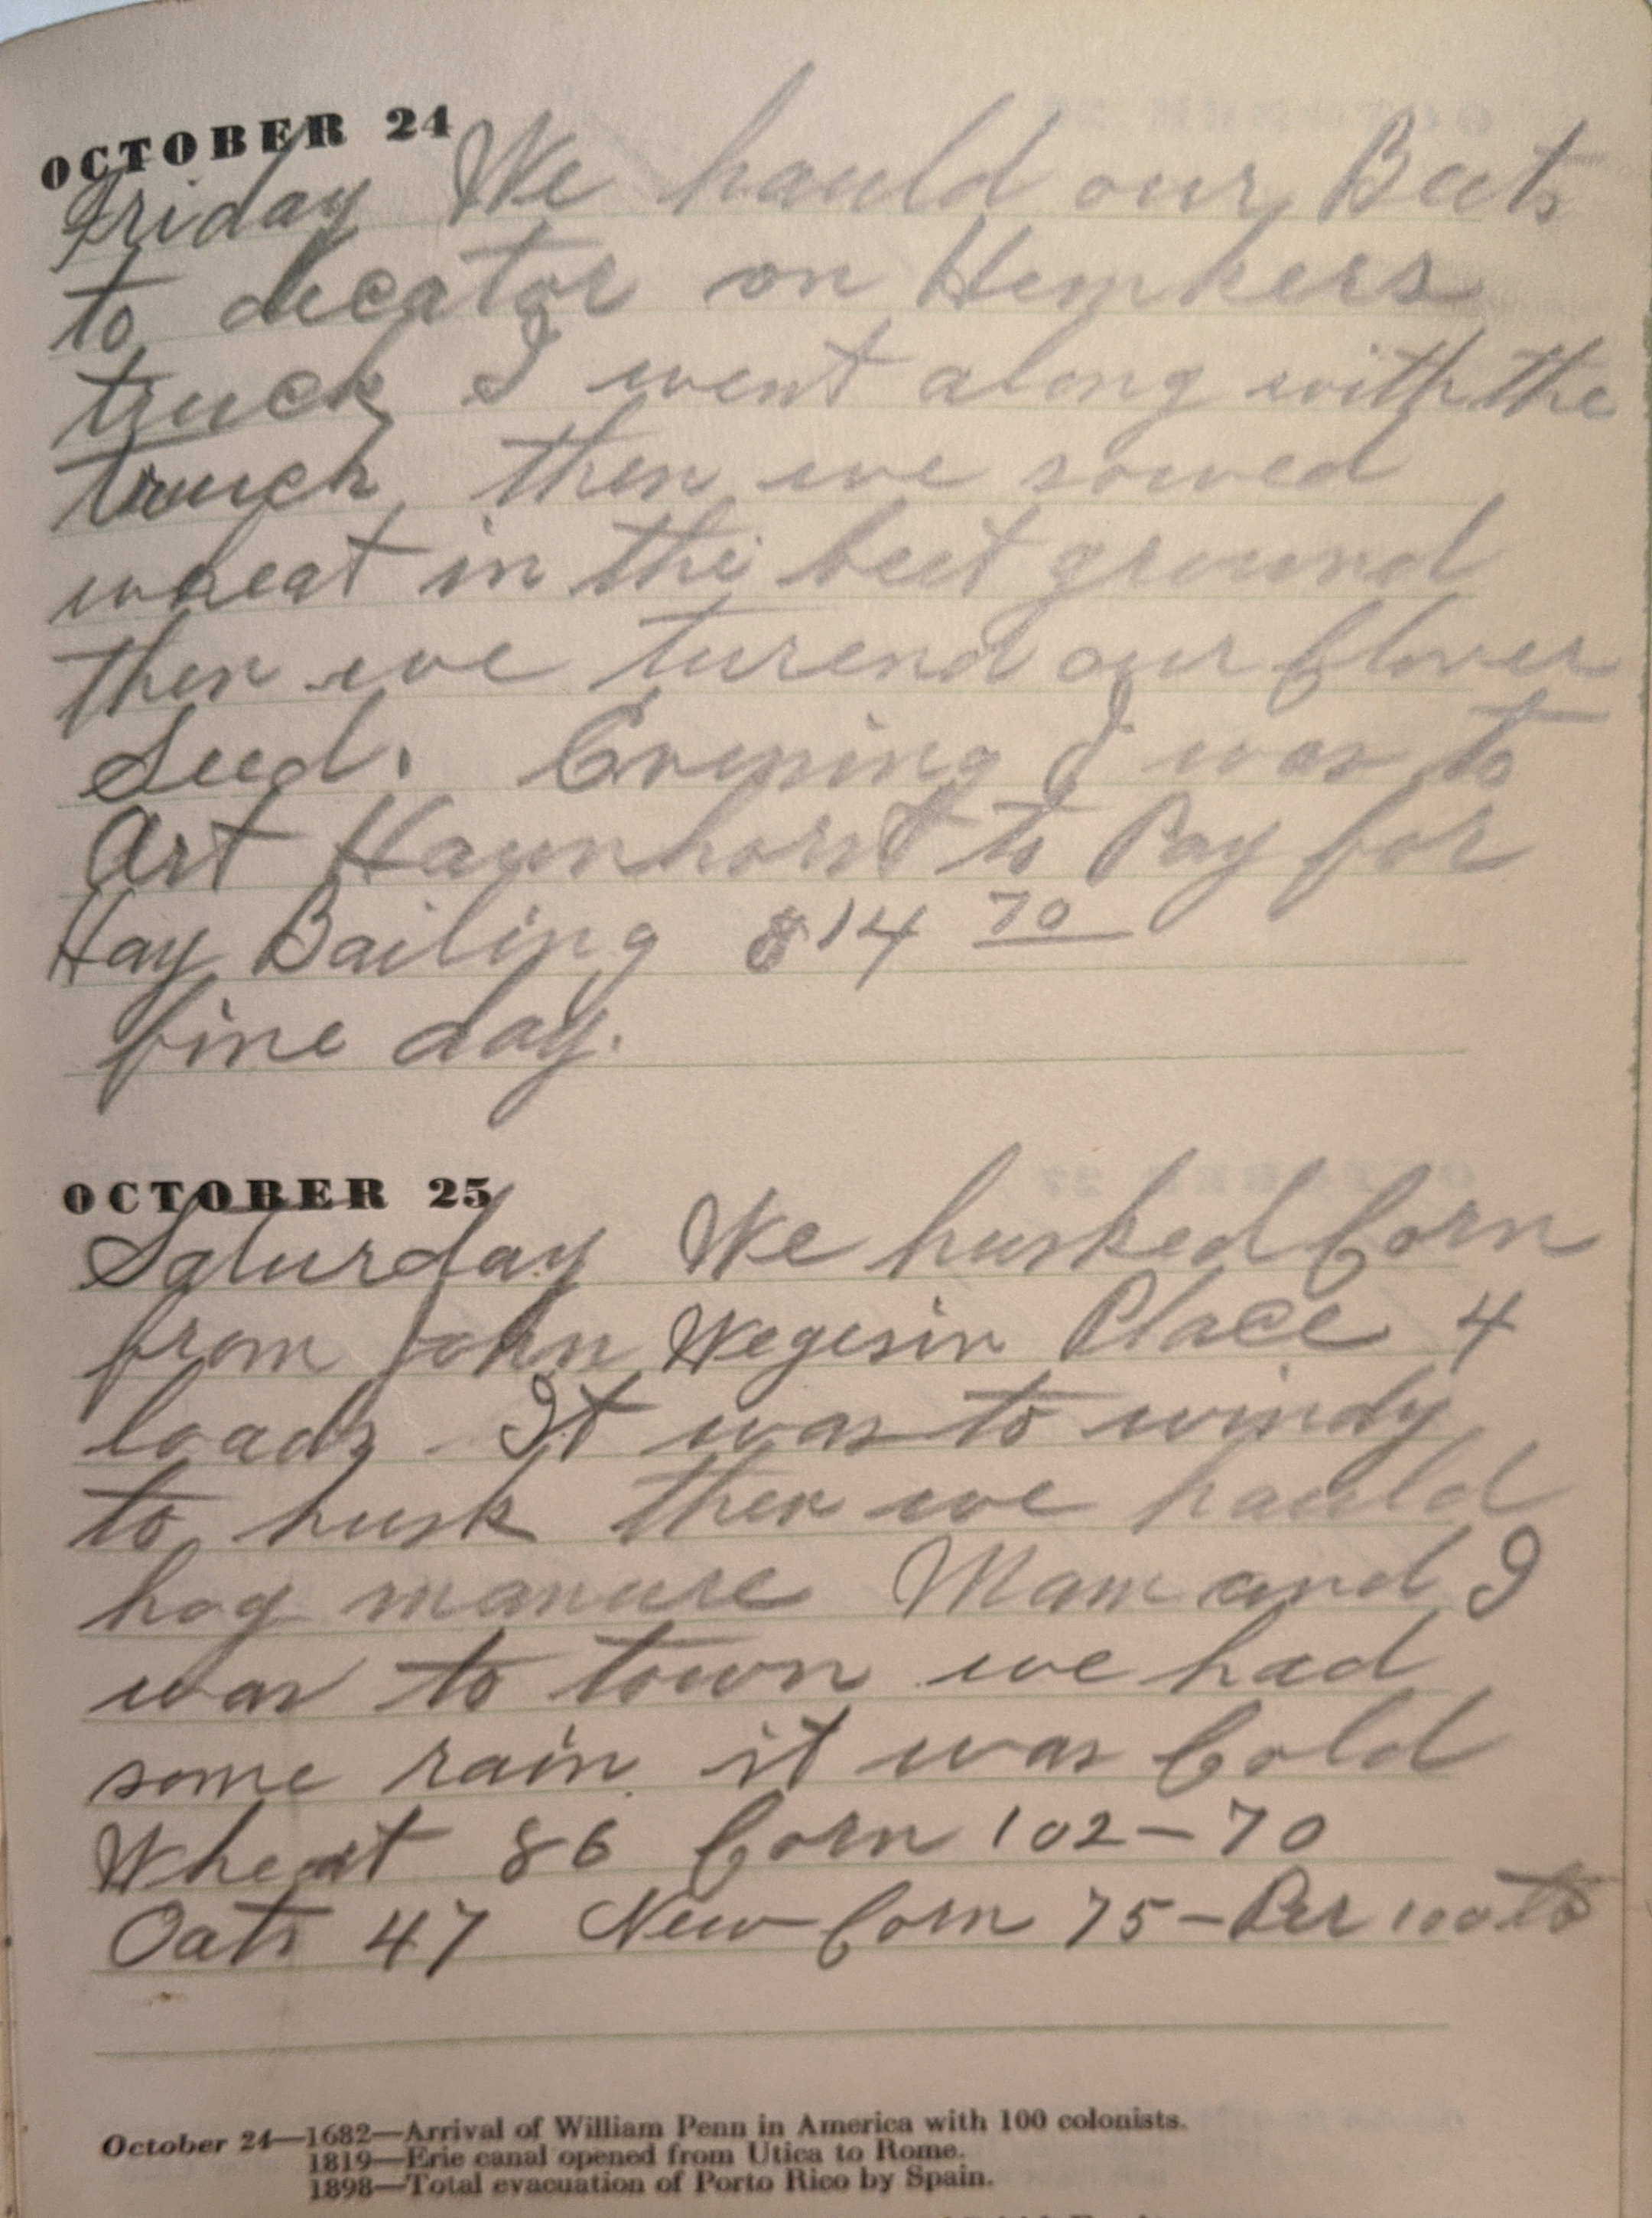 OCTOBER 24
Friday We hauld our Beets
to decator on Hemkers
truck I went along with the
truck then we sowed
wheat in the beet ground
then we turend our Clover
Seed. Evening I was to
Art Haunhorst to Pay for
Hay Bailing $14 70
fine day.
OCTOBER 25
Saturday We husked Corn
from John Wegesin Place 4
loads. It was to windy
to husk then we hauld
hog manure Mam and I
was to town we had
some rain it was Cold
Wheat 86 Corn 102-70
Oats 47 New Corn 75-Per 100
October 24—1682—Arrival of William Penn in America with 100 colonists.
1819—Erie canal opened from Utica to Rome.
1898—Total evacuation of Porto Rico by Spain.